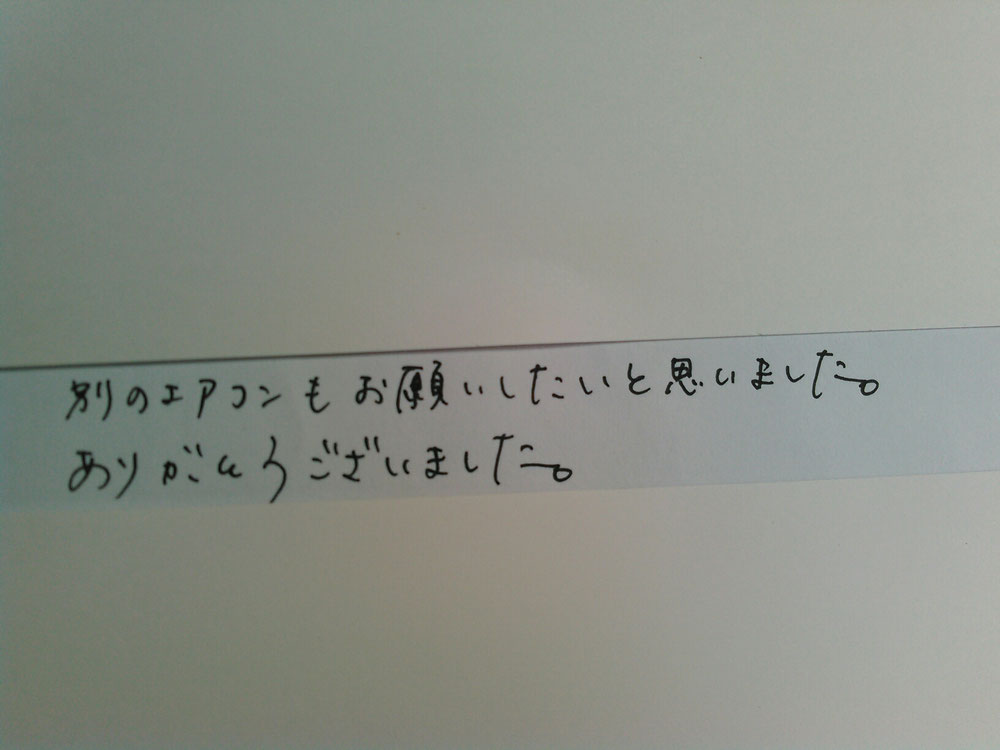 別のエアコンもお願いしたいと思いました。
ありがとうございました。